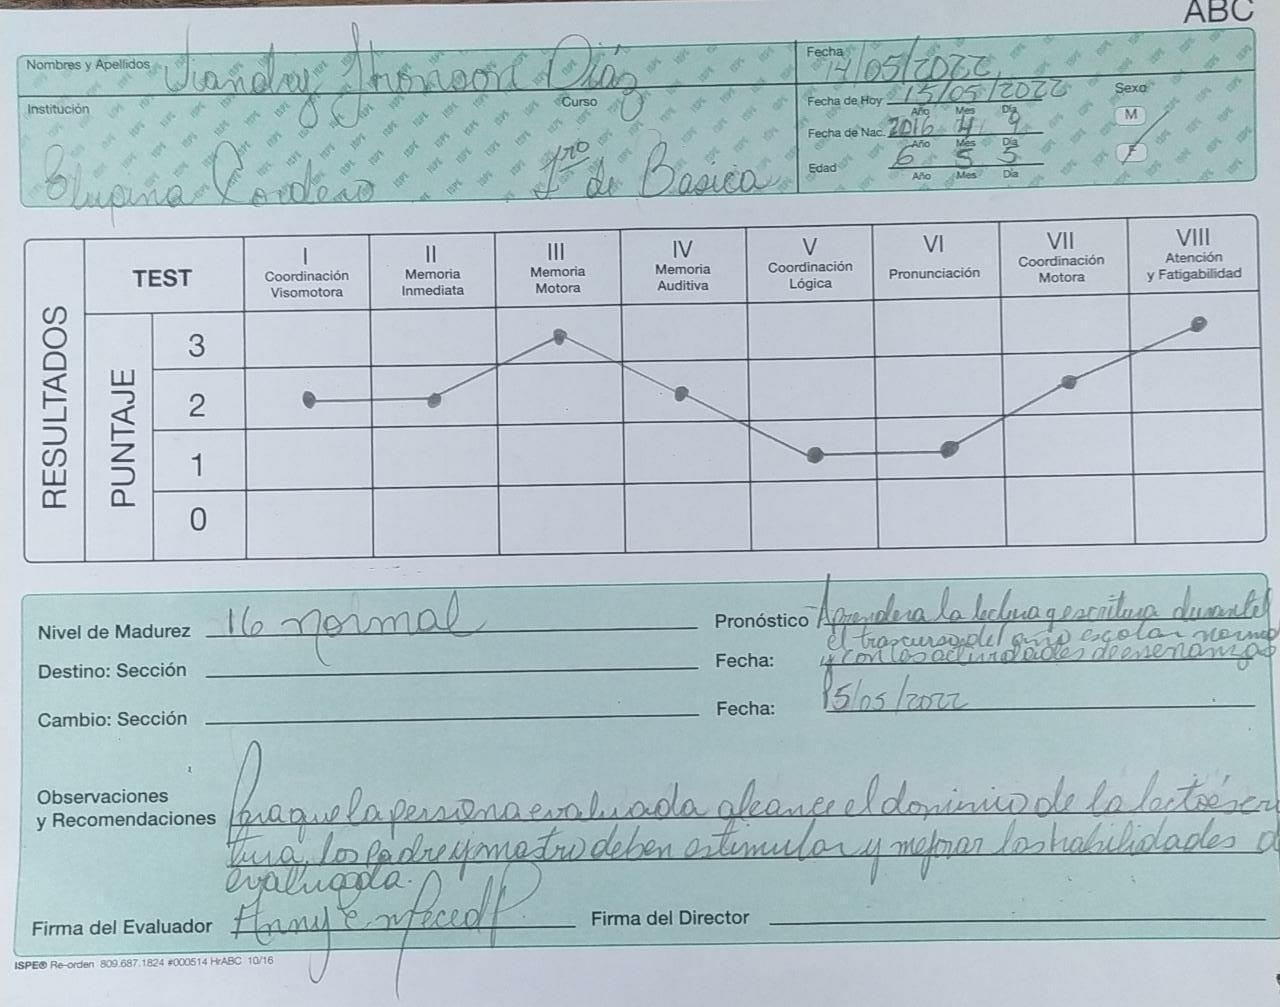 ABC
Nombres y Apellidos Jiandry Jhonson Díaz
Fecha 14/05/2022
Institución
Curso
Fecha de Hoy 15/05/2022
Año Mes Día
Sexo
M
Fecha de Nac. 2016 4 9
Año Mes Día
F
Edad 6 5 5
Año Mes Día
Cordero 1ro de Basica
RESULTADOS
TEST
I
Coordinación
Visomotora
II
Memoria
Inmediata
III
Memoria
Motora
IV
Memoria
Auditiva
V
Coordinación
Lógica
VI
Pronunciación
VII
Coordinación
Motora
VIII
Atención
y Fatigabilidad
PUNTAJE
3
2
1
0
Nivel de Madurez 16 normal
Pronóstico Aprendera la lectura y escritura durante
el trascurso del año escolar normal
Destino: Sección
Fecha: y con las actividades de enseñanzas
Cambio: Sección
Fecha: 15/05/2022
Observaciones
y Recomendaciones
Para que la persona evaluada alcance el dominio de la lectoescri
tura, los padre y maestro deben estimular y mejorar las habilidades
evaluada.
Firma del Evaluador
Firma del Director
ISPE® Re-orden 809.687.1824 #000514 HrABC 10/16